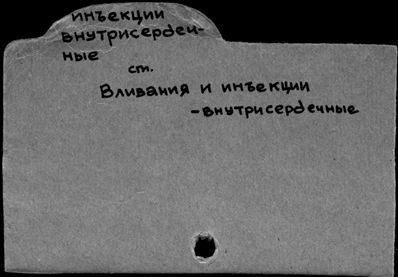 инъекции
внутрисердеч-
ные
ст.
Вливания и инъекции
-внутрисердечные